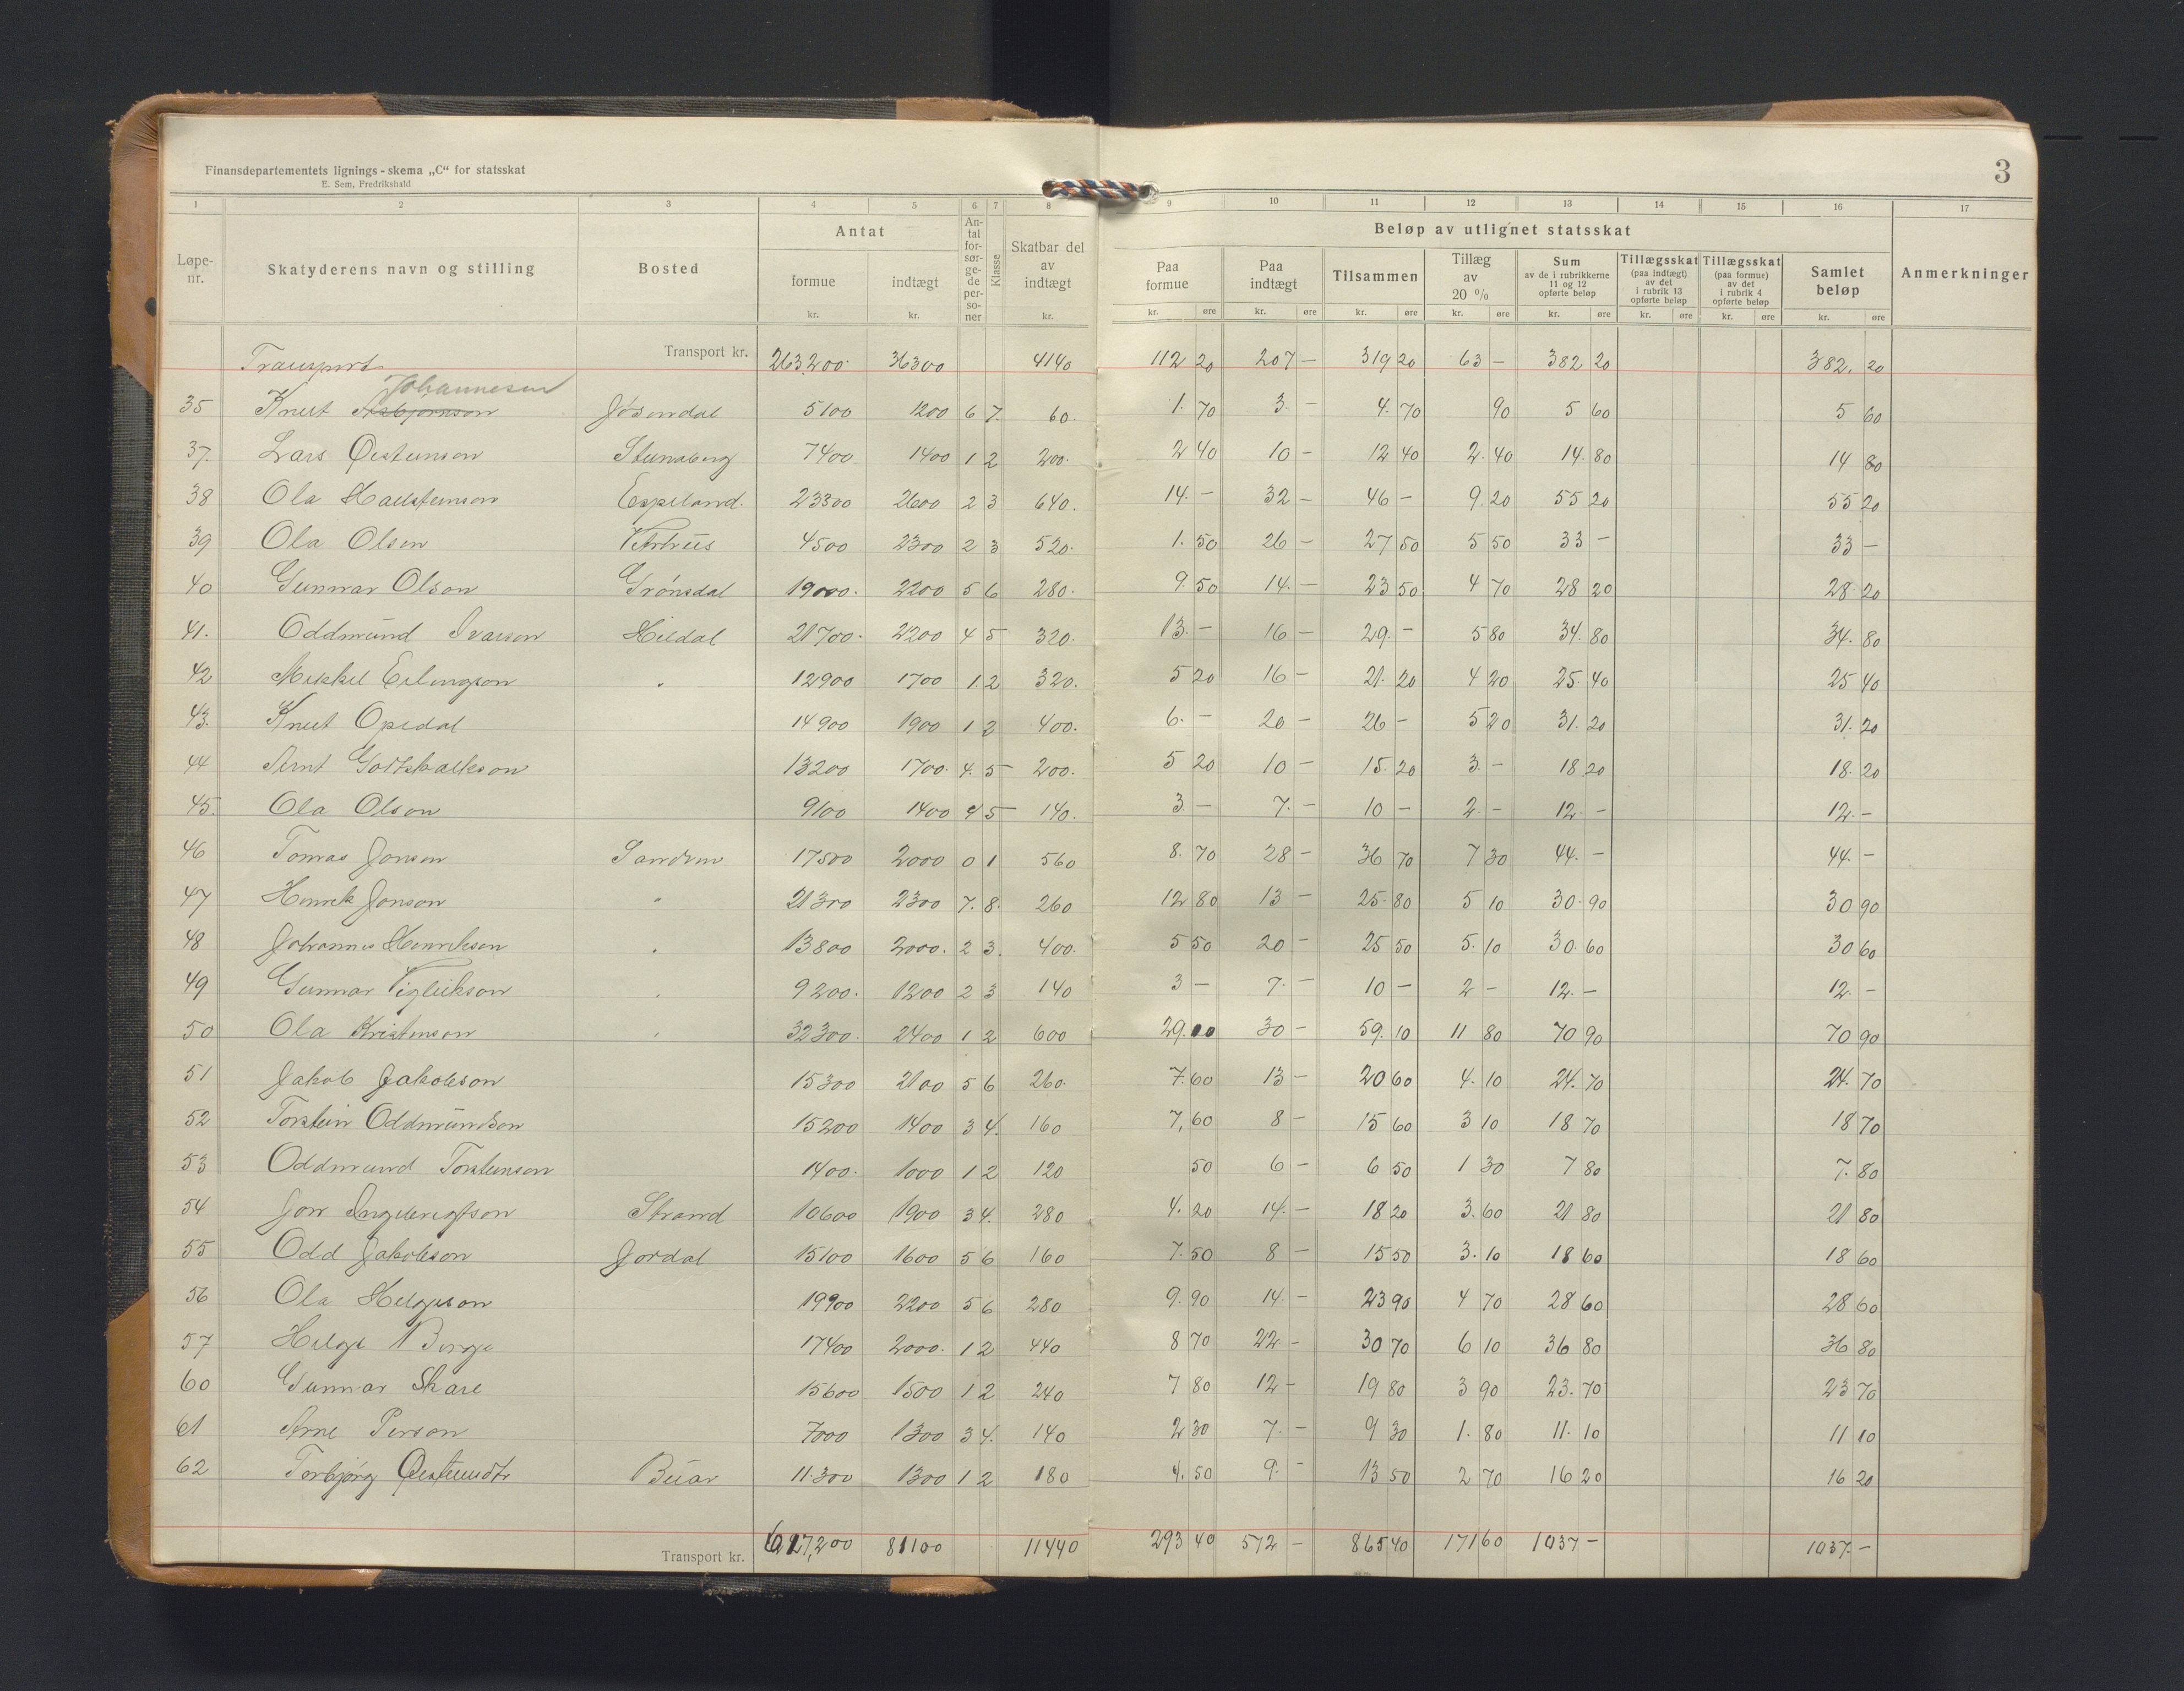 Finansdepartementets lignings-skema „C“ for statsskat
E. Sem, Fredrikshald
3
1 2 3 4 5 6 7 8 9 10 11 12 13 14 15 16 17
Løpe-nr. Skatyderens navn og stilling Bosted Antat formue kr. indtægt kr. Antal forsørgede personer Klasse Skatbar del av indtægt kr. Beløp av utlignet statsskat Paa formue kr. øre Paa indtægt kr. øre Tilsammen kr. øre Tillæg av 20 % kr. øre Sum av de i rubrikkerne 11 og 12 opførte beløp kr. øre Tillægsskat (paa indtægt) av det i rubrik 13 opførte beløp kr. øre Tillægsskat (paa formue) av det i rubrik 4 opførte beløp kr. øre Samlet beløp kr. øre Anmerkninger
Transport Transport kr. 263,200 36300 4140 112 20 207 – 319 20 63 – 382 20 382. 20
Johannesen
35 Knut Asbjørnson Jøsendal 5100 1200 6 7. 60. 1. 70 3. – 4. 70 90 5 60 5 60
37. Lars Øistenson 7400 1400 1 2 200. 2 40 10 – 12 40 2. 40 14. 80 14 80
38 Ola Hallstenson Espeland. 23300 2600 2 3 640. 14. – 32 – 46 – 9. 20 55 20 55 20
39 Ola Olson 4500 2300 2 3 520. 1. 50 26 – 27 50 5 50 33 – 33 –
40 Gunnar Olson Grønsdal 19000. 2200 5 6 280. 9. 50 14. – 23 50 4 70 28 20 28. 20
41. Oddmund Ivarson Hildal 21700. 2200 4 5 320. 13. – 16 – 29. – 5 80 34. 80 34. 80
42 Mikkel Erlingson " 12900 1700 1. 2 320. 5 20 16 – 21. 20 4 20 25. 40 25 40
43. Knut Opedal 14900 1900 1 2 400. 6. – 20 – 26 – 5 20 31. 20 31. 20
44 Arnt Gotskalkson 13200 1700. 4. 5 200. 5 20 10 – 15. 20 3. – 18 20 18. 20
45. Ola Olson 9100 1400 4 5 140. 3 – 7. – 10 – 2. – 12. – 12. –
46 Tomas Jonson Sandven 17500 2000 0 1 560 8. 70 28 – 36 70 7 30 44. – 44. –
47 Henrik Jonson " 21300 2300 7. 8. 260 12 80 13 – 25. 80 5 10 30. 90 30 90
48 Johannes Henrikson " 13800 2000. 2 3. 400. 5 50 20 – 25 50 5. 10 30. 60 30 60
49 Gunnar Vigleikson " 9200. 1200 2 3 140 3 – 7. – 10 – 2 – 12. – 12. –
50 Ola Kristenson " 32300. 2400 1 2 600 29. 10 30 – 59. 10 11 80 70 90 70 90
51 Jakob Jakobson 15300 2100 5 6 260. 7. 60 13 – 20 60 4. 10 24. 70 24. 70
52 Torstein Oddmundson 15200 1400 3 4. 160 7, 60 8 – 15 60 3 10 18 70 18 70
53 Oddmund Torstenson 1400. 1000 1 2 120 50 6 – 6 50 1 30 7 80 7. 80
54 Jon Ingebrigtson Strand 10600 1900 3 4. 280 4. 20 14. – 18 20 3. 60 21 80 21 80
55 Odd Jakobson Jordal 15100 1600 5 6 160 7. 50 8 – 15 50 3. 10 18 60 18 60
56 Ola Helgeson 19900 2200 5 6 280 9. 90 14. – 23 90 4 70 28 60 28 60
57 Helge Berge 17400 2000. 1 2 440 8 70 22 – 30 70 6 10 36 80 36 80
60 Gunnar Skare 15600 1500 1 2 240 7 80 12 – 19 80 3 90 23. 70 23 70
61 Arne Person 7000 1300 3 4. 140 2 30 7. – 9 30 1. 80 11. 10 11 10
62 Torbjørg Øisteinsdtr Buar 11.300 1300 1 2 180 4. 50 9. – 13 50 2 70 16 20 16 20
Transport kr. 627,200 81100 11440 293 40 572 – 865 40 171 60 1037 – 1037. –